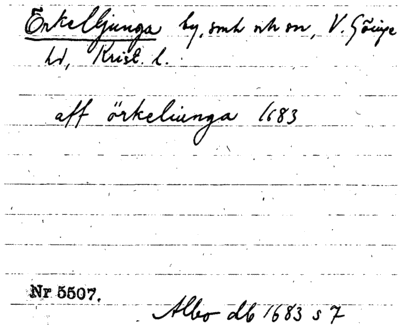 Örkelljunga by, smh och sn, V. Göinge
hd, Krist. l.
aff örkeliunga 1683
Nr 5507.
Albo db 1683 s 7